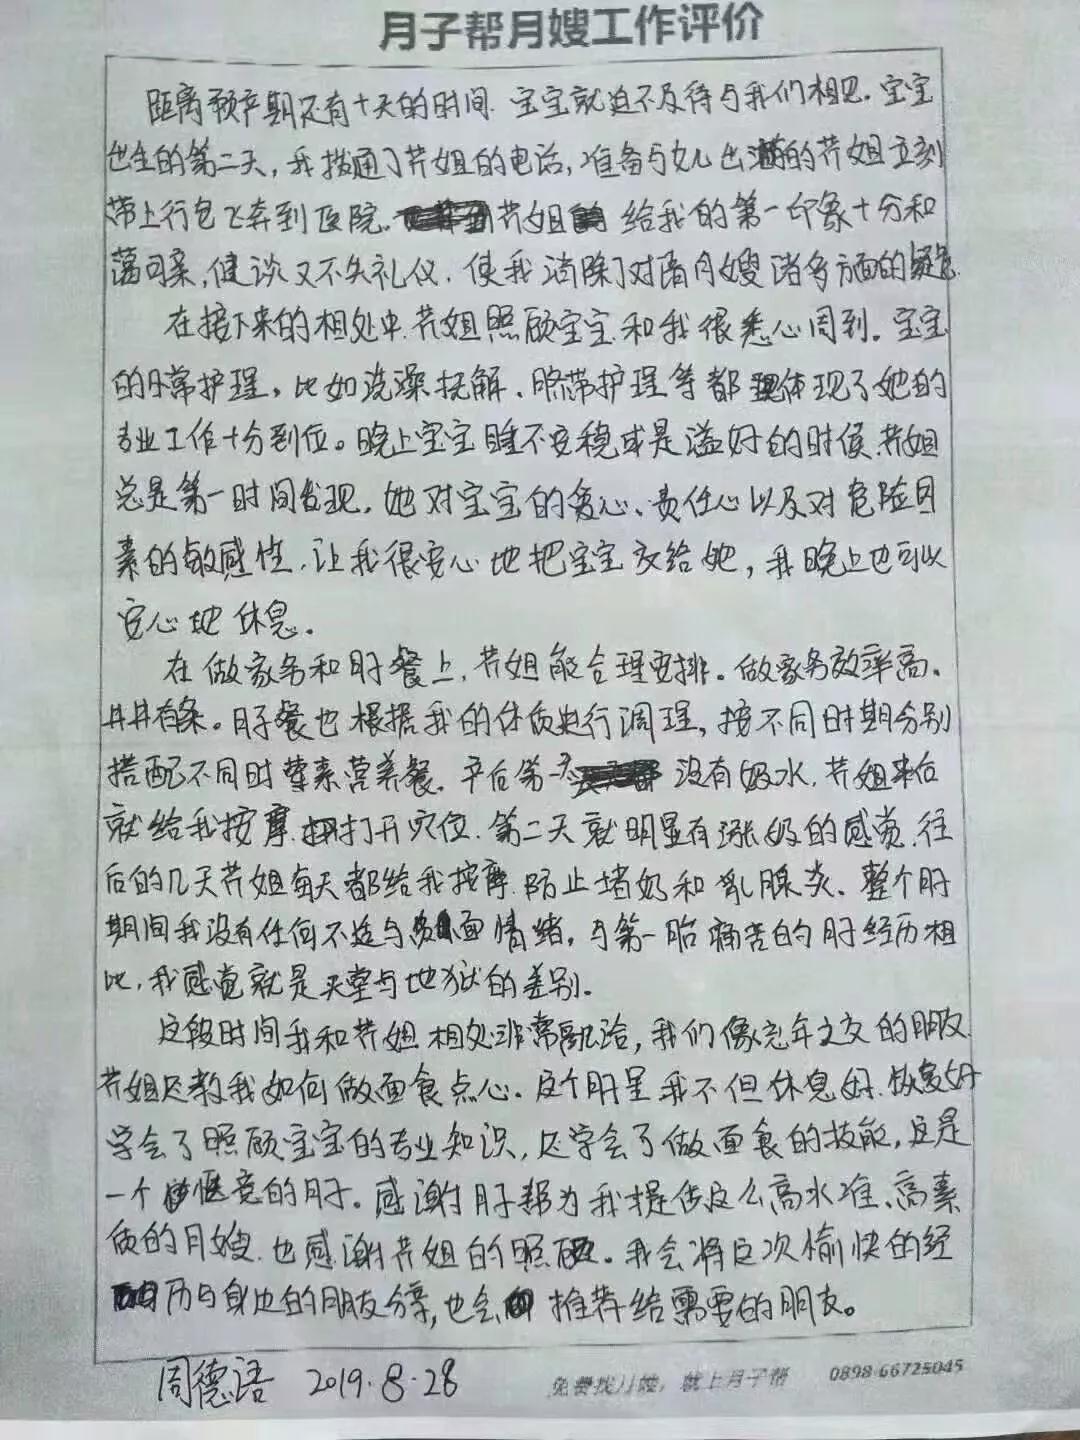 月子帮月嫂工作评价
距离预产期还有十天的时间.宝宝就迫不及待与我们相见.宝宝
出生的第二天,我拨通了芹姐的电话,准备与女儿出游的芹姐立刻
带上行包飞奔到医院.芹姐给我的第一印象十分和
蔼可亲,健谈又不失礼仪.使我消除了对请月嫂诸多方面的疑惑.
在接下来的相处中.芹姐照顾宝宝和我很悉心周到。宝宝
的日常护理,比如洗澡抚触、脐带护理等都体现了她的
专业工作十分到位。晚上宝宝睡不安稳或是溢奶的时候.芹姐
总是第一时间发现,她对宝宝的爱心、责任心以及对危险因
素的敏感性.让我很安心地把宝宝交给她,我晚上也可以
安心地休息.
在做家务和月子餐上,芹姐能合理安排。做家务效率高.
井井有条。月子餐也根据我的体质进行调理,按不同时期分别
搭配不同时荤素营养餐.产后第一天没有奶水.芹姐来后
就给我按摩.打开穴位.第二天就明显有涨奶的感觉.往
后的几天芹姐每天都给我按摩.防止堵奶和乳腺炎.整个月子
期间我没有任何不适与负面情绪,与第一胎痛苦的月子经历相
比,我感觉就是天堂与地狱的差别.
这段时间我和芹姐相处非常融洽,我们像忘年之交的朋友.
芹姐还教我如何做面食点心。这个月子里我不但休息好.恢复好
学会了照顾宝宝的专业知识,还学会了做面食的技能,这是
一个惬意的月子。感谢月子帮为我提供这么高水准、高素
质的月嫂.也感谢芹姐的照顾。我会将这次愉快的经
历与身边的朋友分享,也会推荐给需要的朋友。
周德语 2019.8.28
免费找月嫂,就上月子帮 0898-66725045